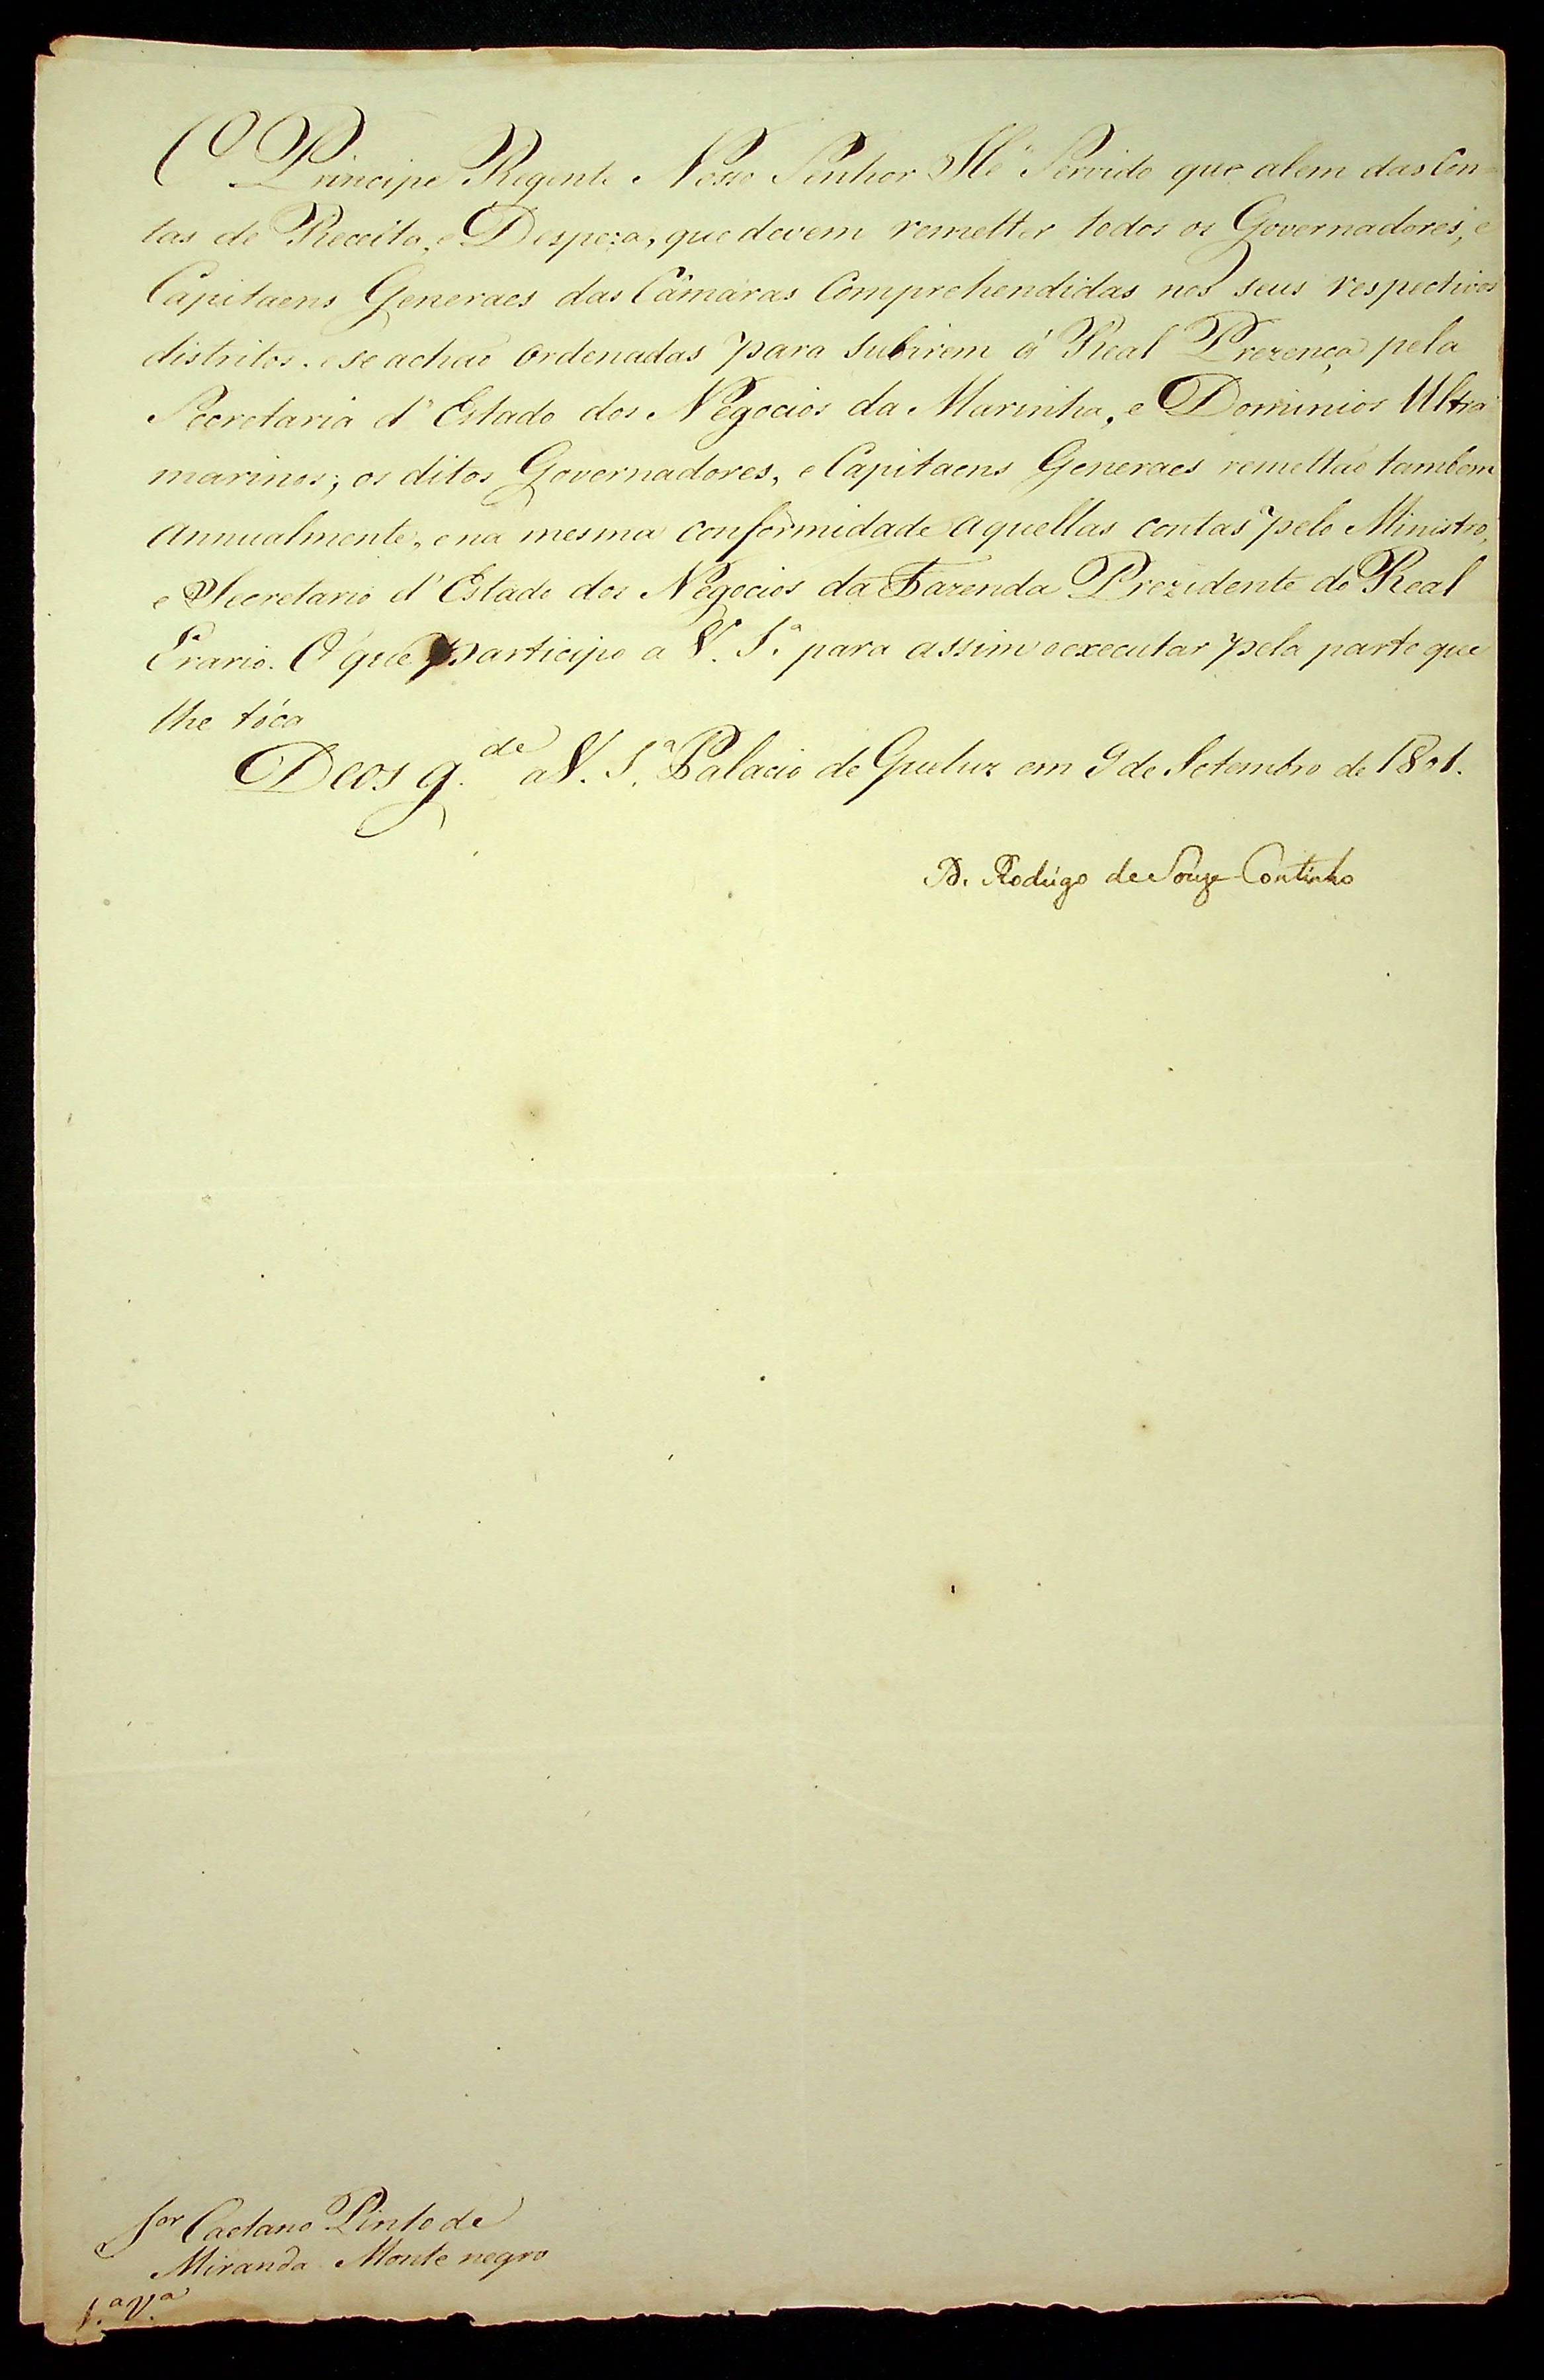 O Principe Regente Nosso Senhor Hé Servido que alem das Con-
tas de Receita, e Despeza, que devem remetter todos os Governadores, e
Capitaens Generaes das Câmaras Comprehendidas nos seus respectivos
distritos, e se achaõ ordenadas para subirem á Real Prezença pela
Secretaria d'Estado dos Negocios da Marinha, e Dominios Ultra
marinos; os ditos Governadores, e Capitaens Generaes remettaõ tambem
annualmente, e na mesma conformidade aquellas contas pelo Ministro,
e Secretario d'Estado dos Negocios da Fazenda Prezidente do Real
Erario. O que participo a V. S.ª para assim o executar pela parte que
lhe tóca
Deos g.de a V. S.ª Palacio de Queluz em 9 de Setembro de 1801.
D. Rodrigo de Souza Coutinho
Sor Caetano Pinto de
Miranda Monte negro
1.ª V.ª